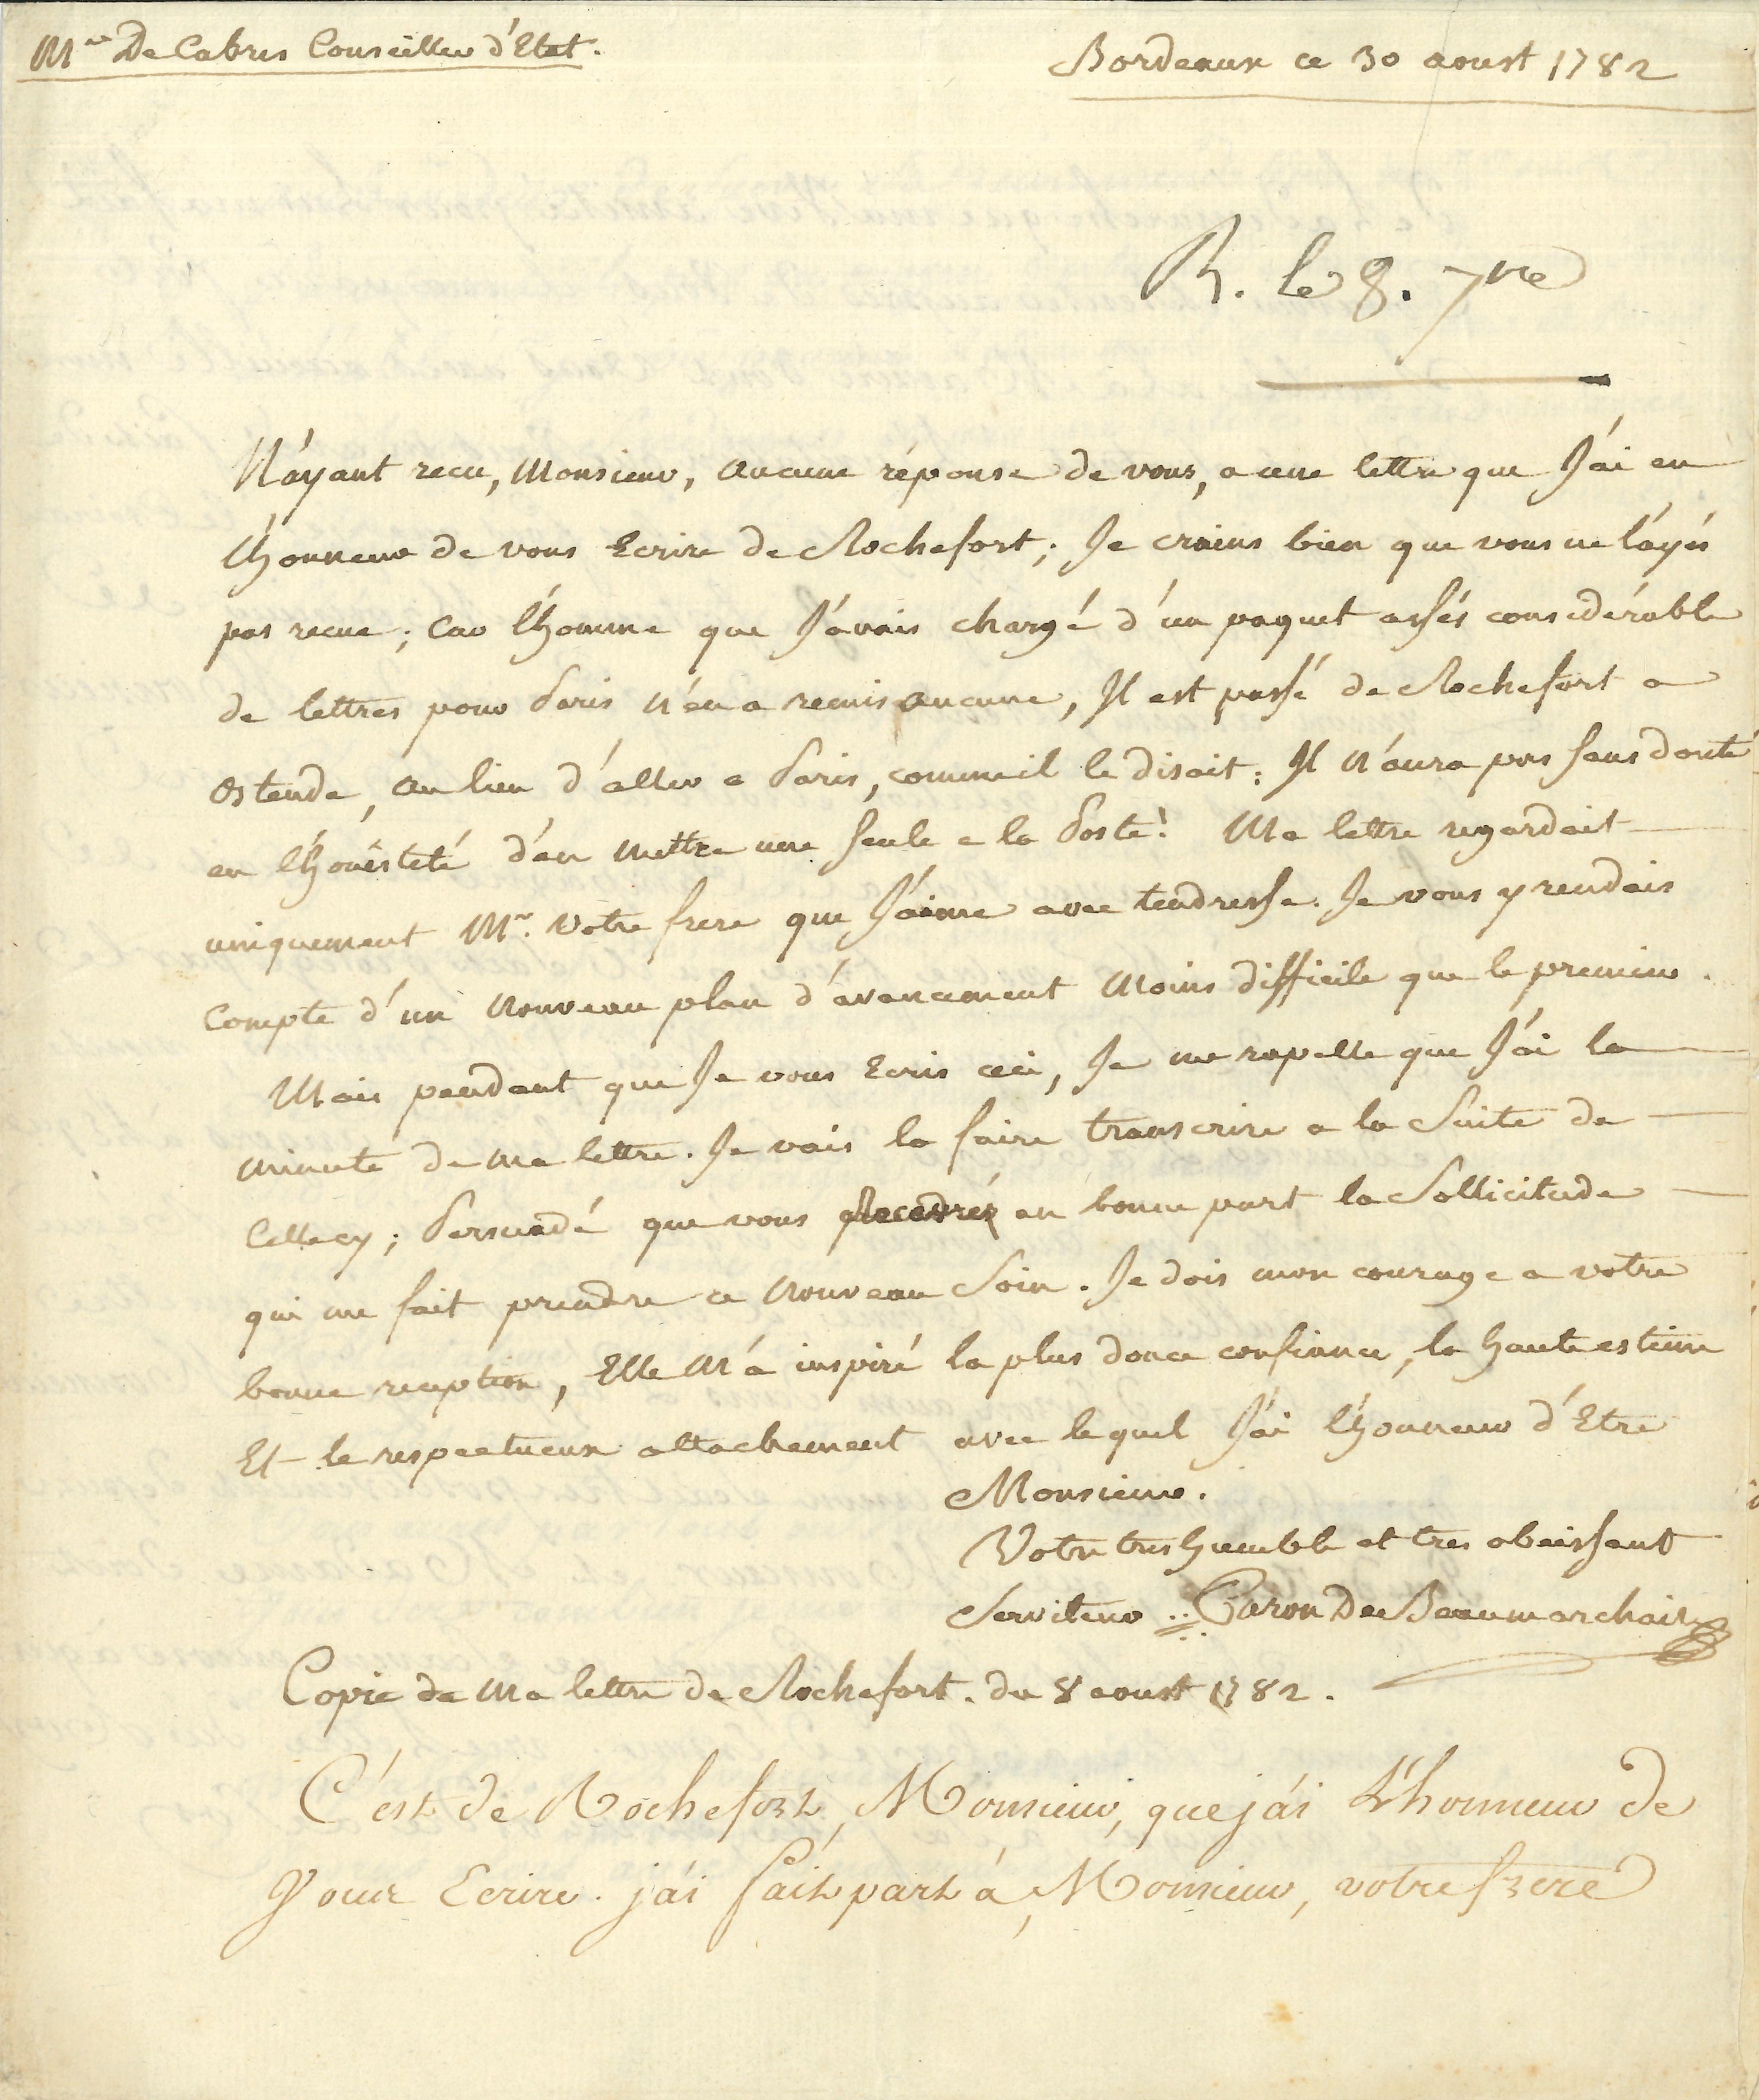 Mr De Cabres Conseiller d'Etat.
Bordeaux ce 30 aoust 1782
R. le 8. 7bre
N'ayant recu, Monsieur, aucune réponse de vous, a une lettre que J'ai eu
l'honneur de vous Ecrire de Rochefort; Je crains bien que vous ne l'ayés
pas recue; car l'homme que J'avais chargé d'un paquet assés considérable
de lettres pour Paris n'en a remis aucune, Il est passé de Rochefort a
Ostende, au lieu d'aller a Paris, comme il le disait: Il n'aura pas sans doute
eu l'honêsteté d'en mettre une seule a la Poste! Ma lettre regardait
uniquement Mr. Votre frere que J'aime avec tendresse. Je vous y rendais
Compte d'un nouveau plan d'avancement moins difficile que le premier.
Mais pendant que Je vous Ecris ceci, Je me rapelle que J'ai la
minute de ma lettre. Je vais la faire transcrire a la Suite de
Cellecy; Persuadé que vous Recevrés en bonne part la Sollicitude
qui me fait prendre ce nouveau Soin. Je dois mon courage a votre
bonne reception, Elle M'a inspiré la plus douce confiance, la haute estime
Et le respectueux attachement avec lequel J'ai l'honneur d'Etre
Monsieur.
Votre tres humble et tres obeissant
Serviteur Caron De Beaumarchais
Copie de Ma lettre de Rochefort. du 8 aoust 1782.
C'est de Rochefort, Monsieur, que j'ai L'honneur de
Vous Ecrire. j'ai fait part à Monsieur, votre frere